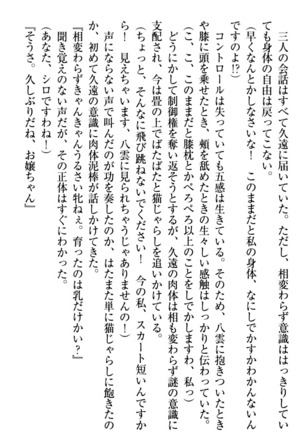 三人の会話はすべて久遠に届いていた。ただし、相変わらず意識ははっきりして
ても身体の自由は戻ってこない。
（早くなんとかしなさいな！　このままだと私の身体、なにしでかすかわかんないん
ですのよ!?）
コントロールは失っていても五感は生きている。そのため、八雲に抱きついたとき
や膝に頭を乗せたとき、頬を舐めたときの生々しい感触はしっかりと伝わっていた。
（こ、ここ、このままだと膝枕とかぺろぺろ以上のことをしでかしますわ、私っ）
どうにかして制御権を奪い返そうとするが、久遠の肉体は相も変わらず謎の意識に
支配され、今は畳の上でばたばたと猫じゃらしを追いかけている。
（ちょっと、そんなに飛び跳ねないでください！　今の私、スカート短いんですか
ら！　見えちゃいます、八雲に見られちゃうじゃありませんの！）
声にならない声で叫んだのが功を奏したのか、はたまた単に猫じゃらしに飽きたの
か、初めて久遠の意識に肉体泥棒が話しかけてきた。
『相変わらずきゃんきゃんうるさい牝ねぇ。育ったのは乳だけかい？』
聞き覚えのない声だが、その正体はすぐにわかった。
（あなた、シロですわね！）
『そうさ。久しぶりだね、お嬢ちゃん』